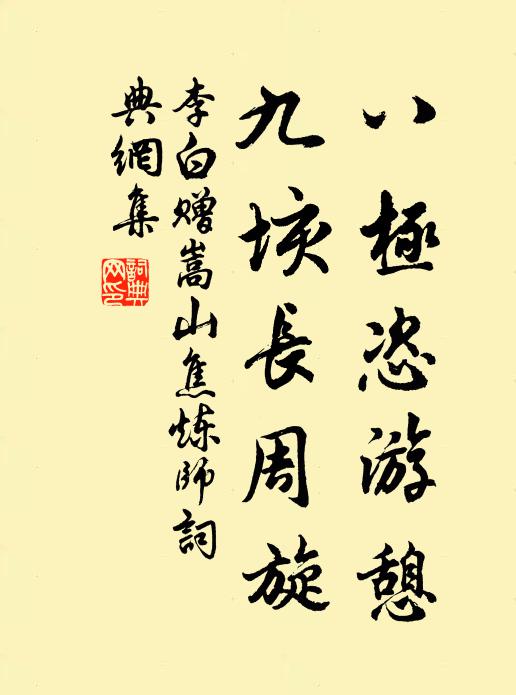 八極恣游憩
九垓長周旋
李白赠嵩山焦炼師詞
典網集
詞典
网印